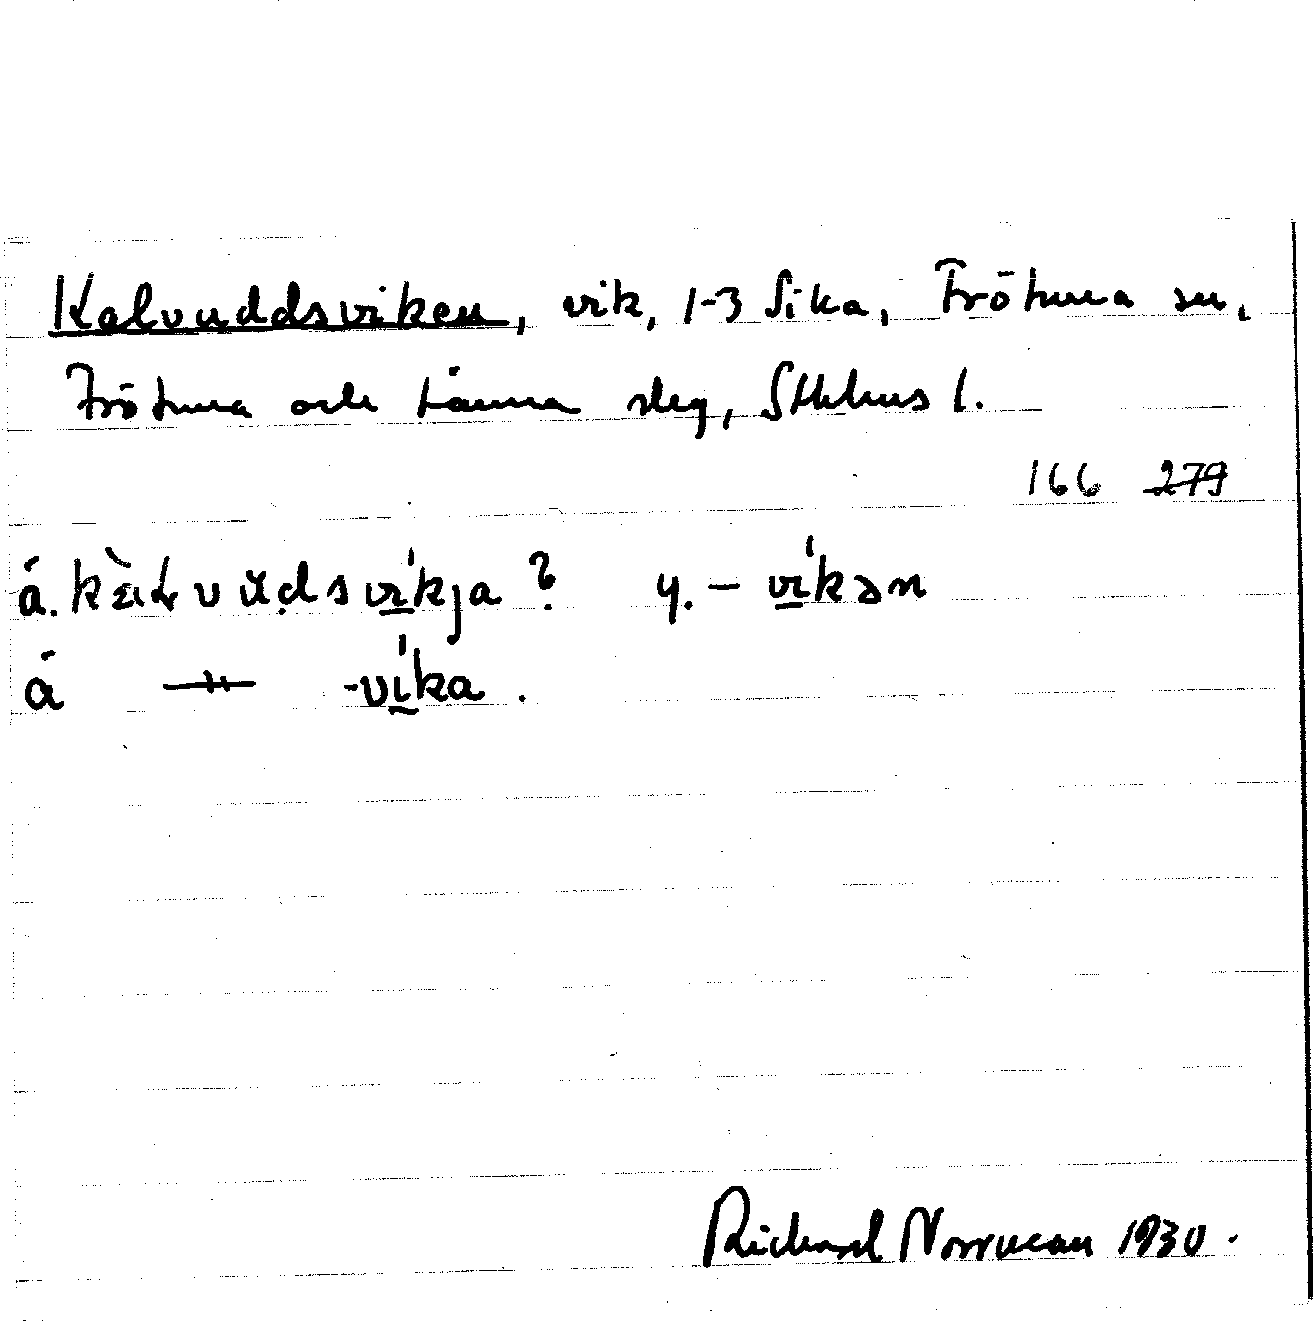 Kalvuddsviken, vik, 1-3 Sika, Frötuna sn,
Frötuna och Länna skg, Sthlms l.
166 279
á. kàḷvudsvíkja? y. - víkən
á -"- -víka.
Richard Norrman 1930.